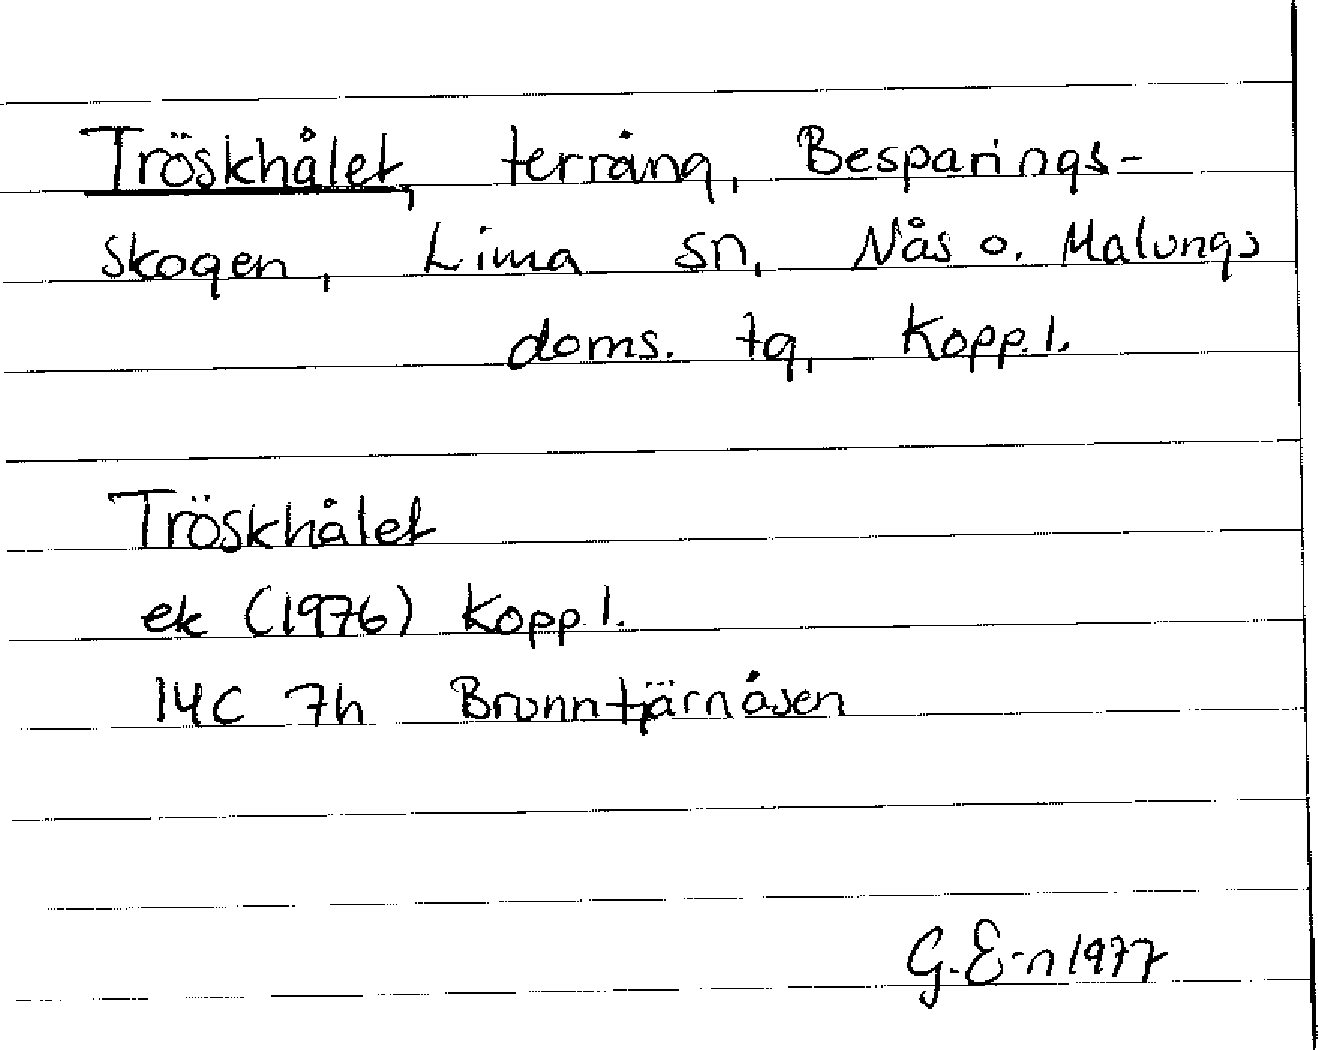 Tröskhålet, terräng, Besparings-
skogen, Lima sn, Nås o. Malungs
doms. tg, Kopp. l.
Tröskhålet
ek (1976) Kopp l.
14C 7h Brunntjärnåsen
G. E-n 1977